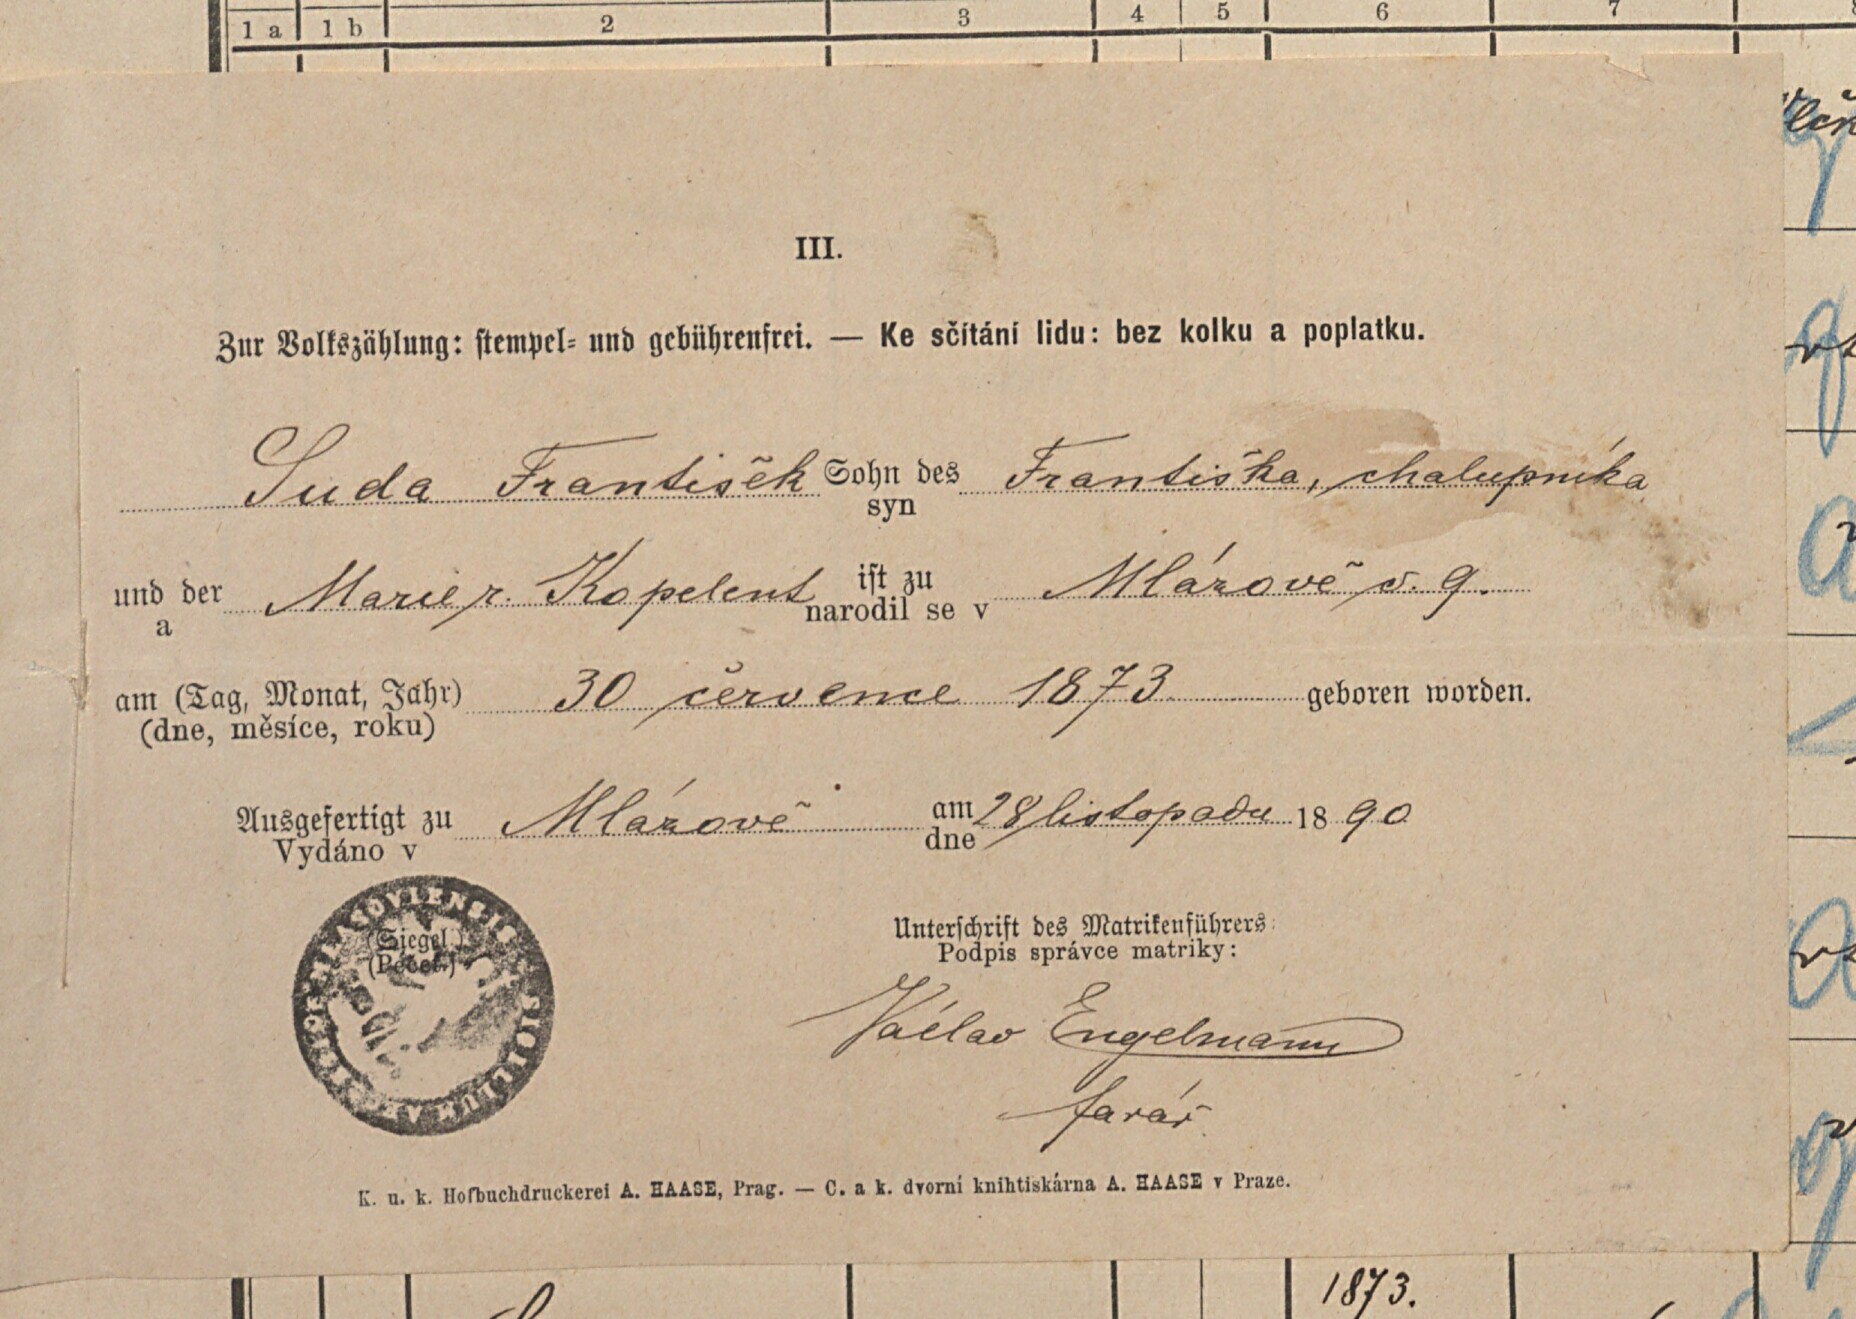 1 a 1 b 2 3 4 5 6 7
III.
Zur Volkszählung: stempel- und gebührenfrei. — Ke sčítání lidu: bez kolku a poplatku.
Suda František Sohn des Františka, chalupníka
syn
und der Marie r. Kopelent ist zu Mlázově č. 9.
a narodil se v
am (Tag, Monat, Jahr) 30 července 1873 geboren worden.
(dne, měsíce, roku)
Ausgefertigt zu Mlázově am 28 listopadu 1890
Vydáno v dne
(Siegel.)
(Pečeť.)
SIGILLUM
Unterschrift des Matrikenführers:
Podpis správce matriky:
Václav Engelmann
farář
K. u. k. Hofbuchdruckerei A. HAASE, Prag. — C. a k. dvorní knihtiskárna A. HAASE v Praze.
1873.